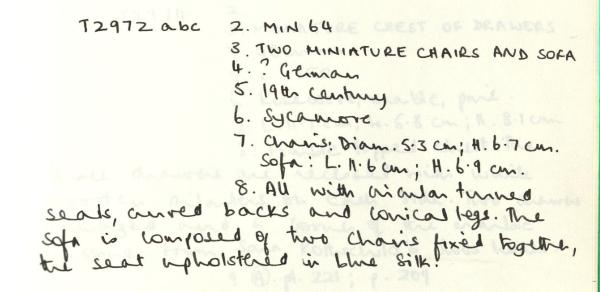 T2972 abc 2. MIN 64
3. TWO MINIATURE CHAIRS AND SOFA
4. ? German
5. 19th Century
6. Sycamore
7. Chairs: Diam. 5.3 cm; H. 6.7 cm.
Sofa: L. 11.6 cm; H. 6.9 cm.
8. All with circular turned
seats, curved backs and conical legs. The
sofa is composed of two chairs fixed together,
the seat upholstered in blue silk.